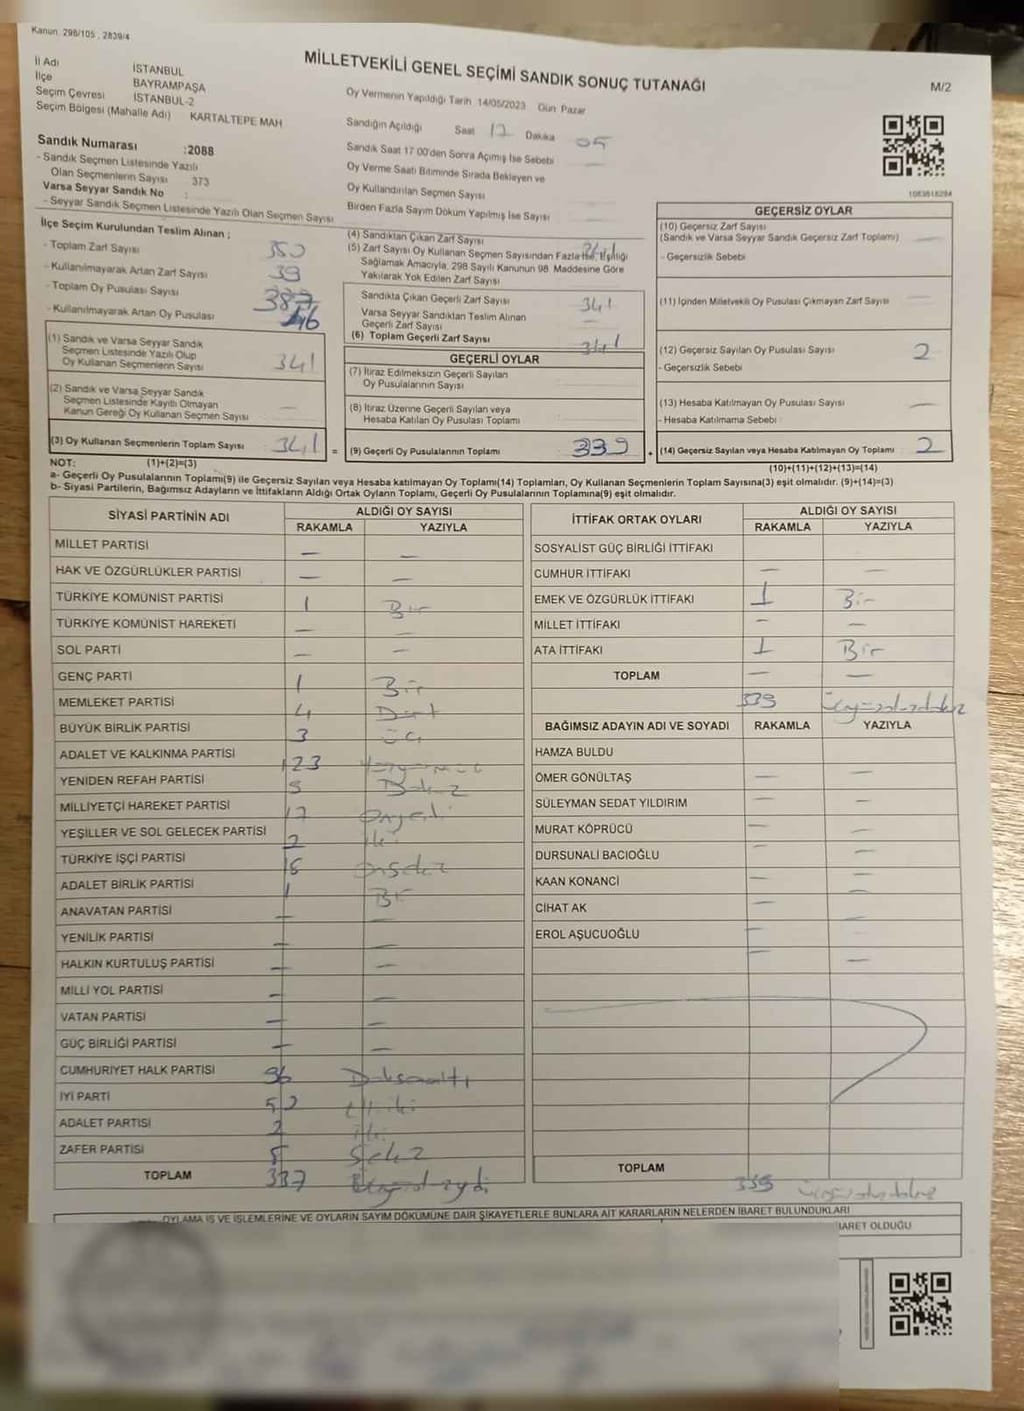 Kanun. 298/105 , 2839/4
MİLLETVEKİLİ GENEL SEÇİMİ SANDIK SONUÇ TUTANAĞI
M/2
İl Adı İSTANBUL
İlçe BAYRAMPAŞA
Seçim Çevresi İSTANBUL-2
Seçim Bölgesi (Mahalle Adı) KARTALTEPE MAH
Oy Vermenin Yapıldığı Tarih 14/05/2023 Gün Pazar
Sandığın Açıldığı Saat 17 Dakika 05
Sandık Saat 17:00'den Sonra Açılmış İse Sebebi
Oy Verme Saati Bitiminde Sırada Bekleyen ve
Oy Kullandırılan Seçmen Sayısı
Birden Fazla Sayım Döküm Yapılmış İse Sayısı
Sandık Numarası :2088
- Sandık Seçmen Listesinde Yazılı
Olan Seçmenlerin Sayısı 373
Varsa Seyyar Sandık No :
- Seyyar Sandık Seçmen Listesinde Yazılı Olan Seçmen Sayısı
İlçe Seçim Kurulundan Teslim Alınan ;
- Toplam Zarf Sayısı 350
- Kullanılmayarak Artan Zarf Sayısı 39
- Toplam Oy Pusulası Sayısı 387
- Kullanılmayarak Artan Oy Pusulası 46
(1) Sandık ve Varsa Seyyar Sandık
Seçmen Listesinde Yazılı Olup
Oy Kullanan Seçmenlerin Sayısı 341
(2) Sandık ve Varsa Seyyar Sandık
Seçmen Listesinde Kayıtlı Olmayan
Kanun Gereği Oy Kullanan Seçmen Sayısı —
(3) Oy Kullanan Seçmenlerin Toplam Sayısı 341
(1)+(2)=(3)
(4) Sandıktan Çıkan Zarf Sayısı 341
(5) Zarf Sayısı Oy Kullanan Seçmen Sayısından Fazla İse, Eşitliği
Sağlamak Amacıyla, 298 Sayılı Kanunun 98. Maddesine Göre
Yakılarak Yok Edilen Zarf Sayısı
Sandıkta Çıkan Geçerli Zarf Sayısı 341
Varsa Seyyar Sandıktan Teslim Alınan
Geçerli Zarf Sayısı —
(6) Toplam Geçerli Zarf Sayısı 341
GEÇERLİ OYLAR
(7) İtiraz Edilmeksizin Geçerli Sayılan
Oy Pusulalarının Sayısı
(8) İtiraz Üzerine Geçerli Sayılan veya
Hesaba Katılan Oy Pusulası Toplamı
= (9) Geçerli Oy Pusulalarının Toplamı 339 +
1083618294
GEÇERSİZ OYLAR
(10) Geçersiz Zarf Sayısı
(Sandık ve Varsa Seyyar Sandık Geçersiz Zarf Toplamı) —
- Geçersizlik Sebebi
(11) İçinden Milletvekili Oy Pusulası Çıkmayan Zarf Sayısı —
(12) Geçersiz Sayılan Oy Pusulası Sayısı 2
- Geçersizlik Sebebi
(13) Hesaba Katılmayan Oy Pusulası Sayısı —
- Hesaba Katılmama Sebebi
(14) Geçersiz Sayılan veya Hesaba Katılmayan Oy Toplamı 2
(10)+(11)+(12)+(13)=(14)
NOT:
a- Geçerli Oy Pusulalarının Toplamı(9) ile Geçersiz Sayılan veya Hesaba katılmayan Oy Toplamı(14) Toplamları, Oy Kullanan Seçmenlerin Toplam Sayısına(3) eşit olmalıdır. (9)+(14)=(3)
b- Siyasi Partilerin, Bağımsız Adayların ve İttifakların Aldığı Ortak Oyların Toplamı, Geçerli Oy Pusulalarının Toplamına(9) eşit olmalıdır.
SİYASİ PARTİNİN ADI ALDIĞI OY SAYISI
RAKAMLA YAZIYLA
MİLLET PARTİSİ — —
HAK VE ÖZGÜRLÜKLER PARTİSİ — —
TÜRKİYE KOMÜNİST PARTİSİ 1 Bir
TÜRKİYE KOMÜNİST HAREKETİ — —
SOL PARTİ — —
GENÇ PARTİ 1 Bir
MEMLEKET PARTİSİ 4 Dört
BÜYÜK BİRLİK PARTİSİ 3 üç
ADALET VE KALKINMA PARTİSİ 123
YENİDEN REFAH PARTİSİ
MİLLİYETÇİ HAREKET PARTİSİ 17 onyedi
YEŞİLLER VE SOL GELECEK PARTİSİ 2 iki
TÜRKİYE İŞÇİ PARTİSİ onsekiz
ADALET BİRLİK PARTİSİ 1 Bir
ANAVATAN PARTİSİ — —
YENİLİK PARTİSİ — —
HALKIN KURTULUŞ PARTİSİ — —
MİLLİ YOL PARTİSİ — —
VATAN PARTİSİ — —
GÜÇ BİRLİĞİ PARTİSİ — —
CUMHURİYET HALK PARTİSİ 96 Doksanaltı
İYİ PARTİ 52 Elliiki
ADALET PARTİSİ 2 iki
ZAFER PARTİSİ 8 Sekiz
TOPLAM 337 Üçyüzotuzyedi
İTTİFAK ORTAK OYLARI ALDIĞI OY SAYISI
RAKAMLA YAZIYLA
SOSYALİST GÜÇ BİRLİĞİ İTTİFAKI
CUMHUR İTTİFAKI — —
EMEK VE ÖZGÜRLÜK İTTİFAKI 1 Bir
MİLLET İTTİFAKI — —
ATA İTTİFAKI 1 Bir
TOPLAM — —
339 üçyüzotuzdokuz
BAĞIMSIZ ADAYIN ADI VE SOYADI RAKAMLA YAZIYLA
HAMZA BULDU
ÖMER GÖNÜLTAŞ — —
SÜLEYMAN SEDAT YILDIRIM — —
MURAT KÖPRÜCÜ — —
DURSUNALİ BACIOĞLU — —
KAAN KONANCİ — —
CİHAT AK — —
EROL AŞUCUOĞLU — —
TOPLAM 339 üçyüzotuzdokuz
OYLAMA İŞ VE İŞLEMLERİNE VE OYLARIN SAYIM DÖKÜMÜNE DAİR ŞİKAYETLERLE BUNLARA AİT KARARLARIN NELERDEN İBARET BULUNDUKLARI
İBARET OLDUĞU